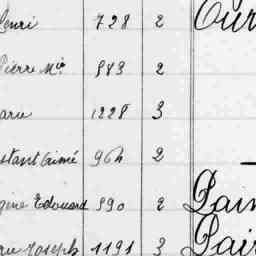 Henri 728 2 Cur
Pierre Mie 983 2
1228 3
stant Aimé 964 2
gne Edouard 990 2 Pain
Joseph 1191 3 Pair